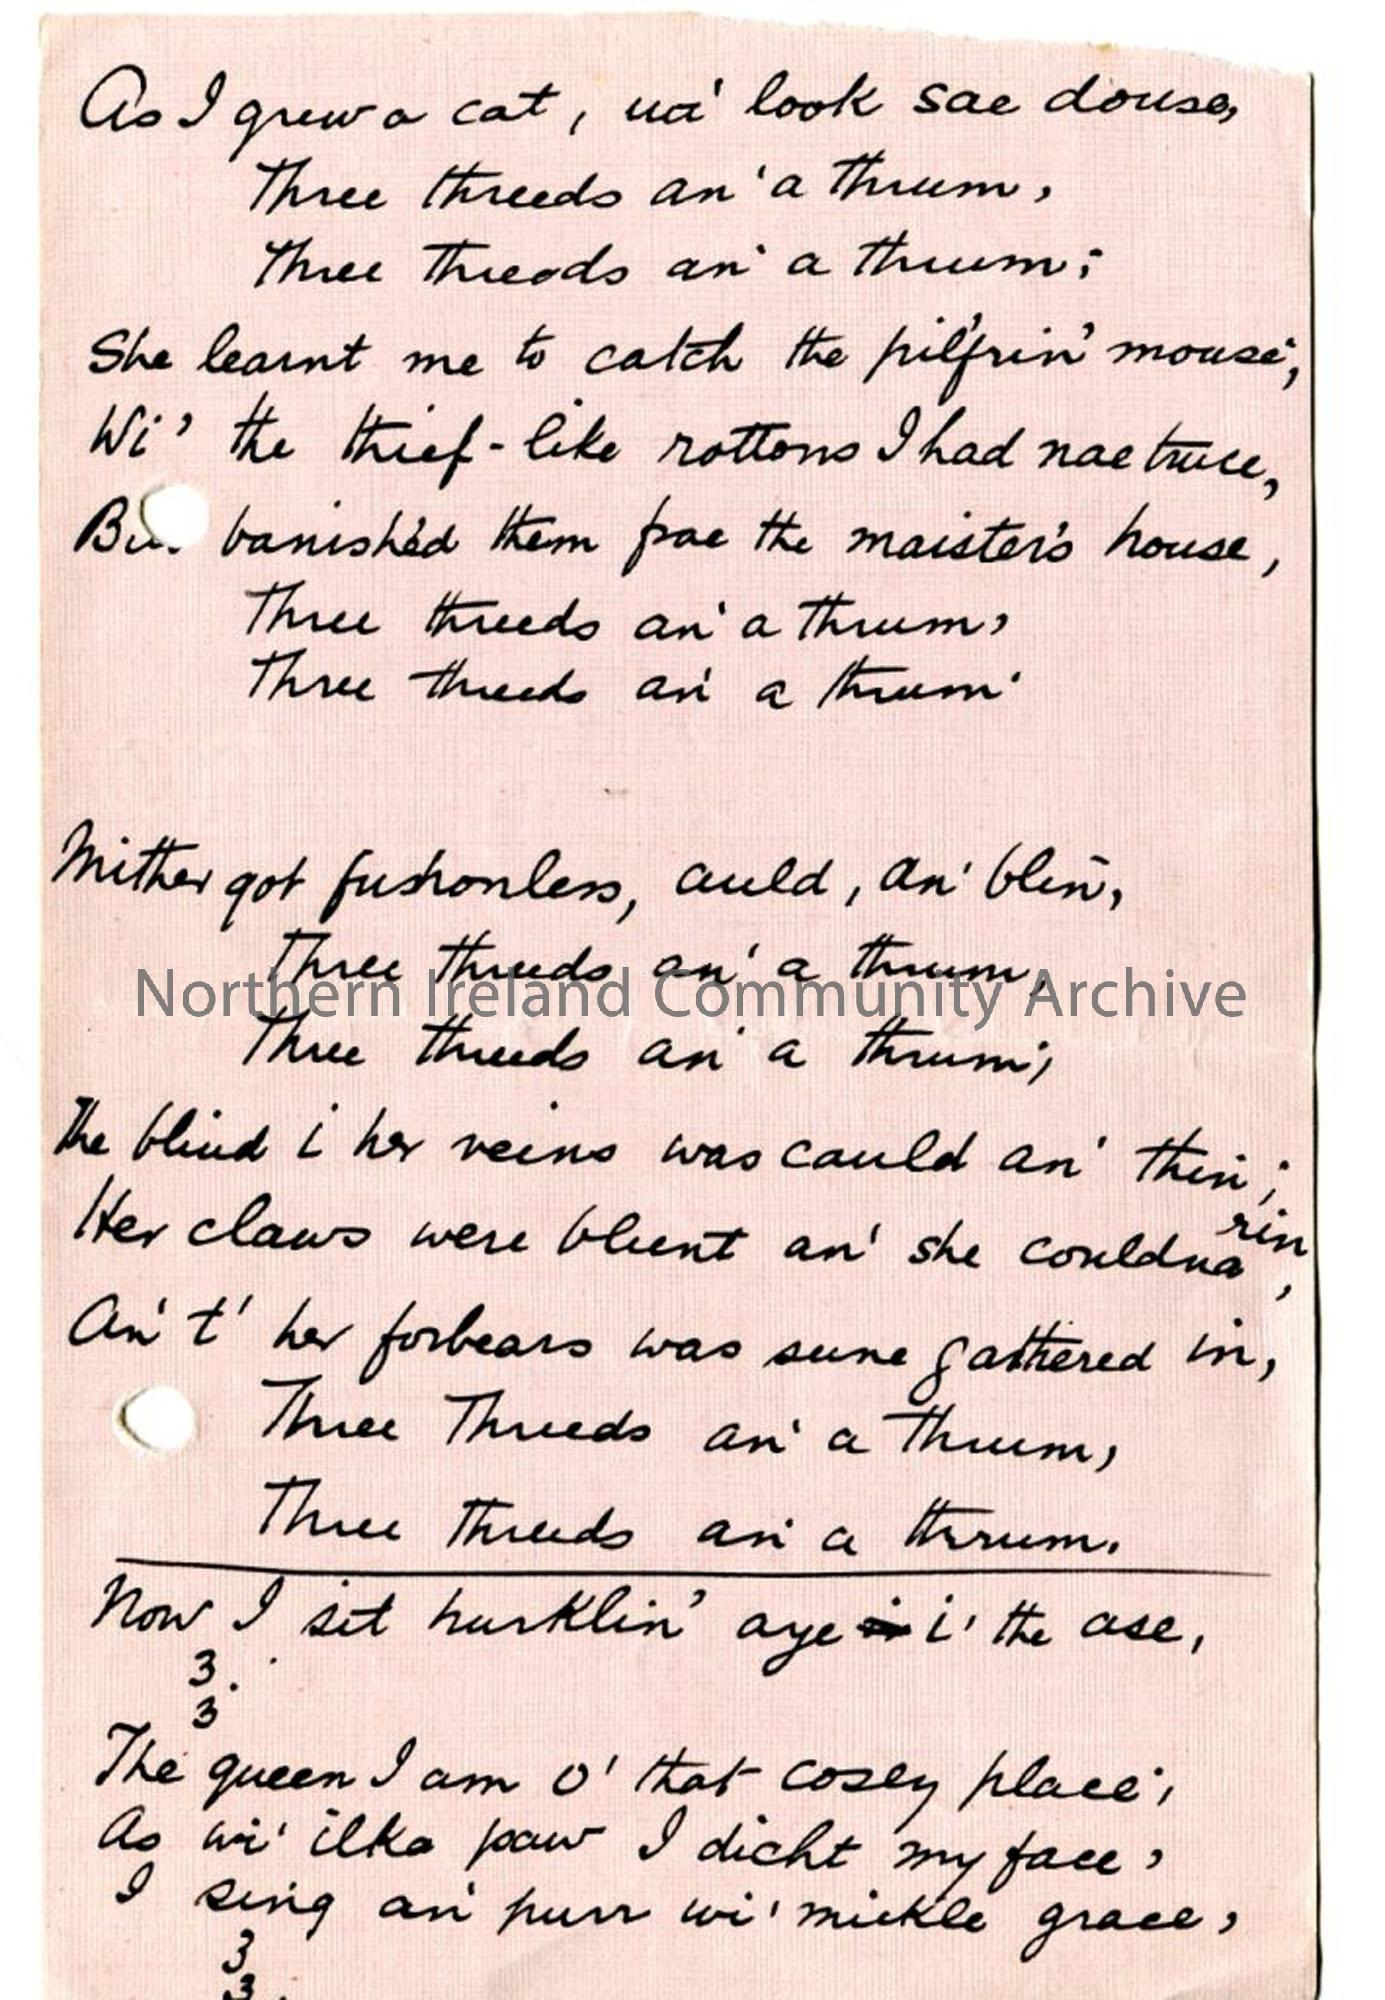 As I grew a cat, wi' look sae douse,
Three threeds an' a thrum,
Three threeds an' a thrum;
She learnt me to catch the pilfrin' mouse,
Wi' the thief-like rottons I had nae truce,
But banish'd them frae the maister's house,
Three threeds an' a thrum,
Three threeds an' a thrum.
Mither got fushonless, auld, an' blin',
Three threeds an' a thrum,
Northern Ireland Community Archive
Three threeds an' a thrum;
The bluid i her veins was cauld an' thin;
Her claws were blunt an' she couldna rin,
An' t' her forbears was sune gathered in,
Three Threeds an' a Thrum,
Three Threeds an' a thrum.
Now I sit hurklin' aye i' the ase,
3.
3
The queen I am o' that cosey place;
As wi' ilka paw I dicht my face,
I sing an' purr wi' mickle grace,
3
3.